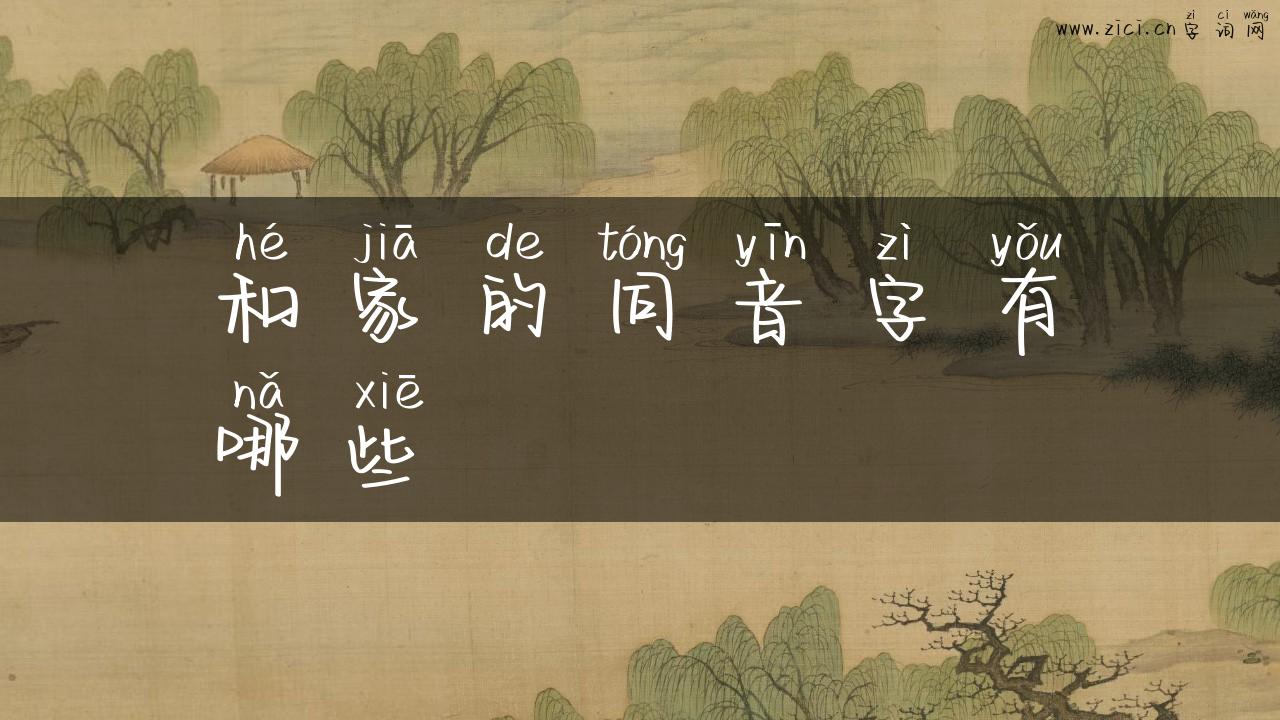 zì cí wǎng
www.zici.cn 字 词 网
hé jiā de tóng yīn zì yǒu
和 家 的 同 音 字 有
nǎ xiē
哪 些